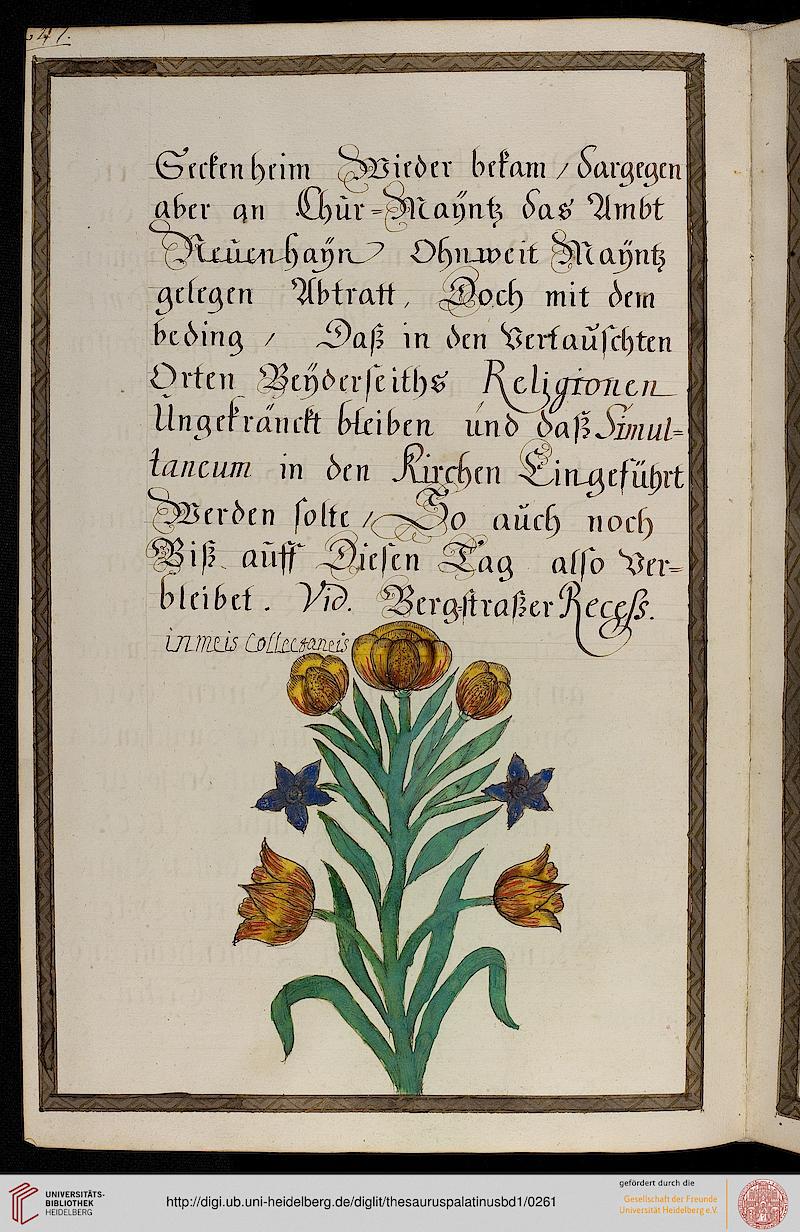 241.
Seckenheim Wieder bekam / dargegen
aber an Chür=Mayntz das Ambt
Neüenhaÿn Ohnweit Maÿntz
gelegen Abtratt, Doch mit dem
beding / Daß in den Vertaüschten
Orten Beÿderseiths Religionen
Ungekränckt bleiben und daß Simul=
taneum in den Kirchen Eingeführt
Werden solte / So aüch noch
Biß aüff Diesen Tag also Ver=
bleibet. Vid. Bergstraßer Recess.
in meis Collectaneis
UNIVERSITÄTS-
BIBLIOTHEK
HEIDELBERG
http://digi.ub.uni-heidelberg.de/diglit/thesauruspalatinusbd1/0261
gefördert durch die
Gesellschaft der Freunde
Universität Heidelberg e.V.